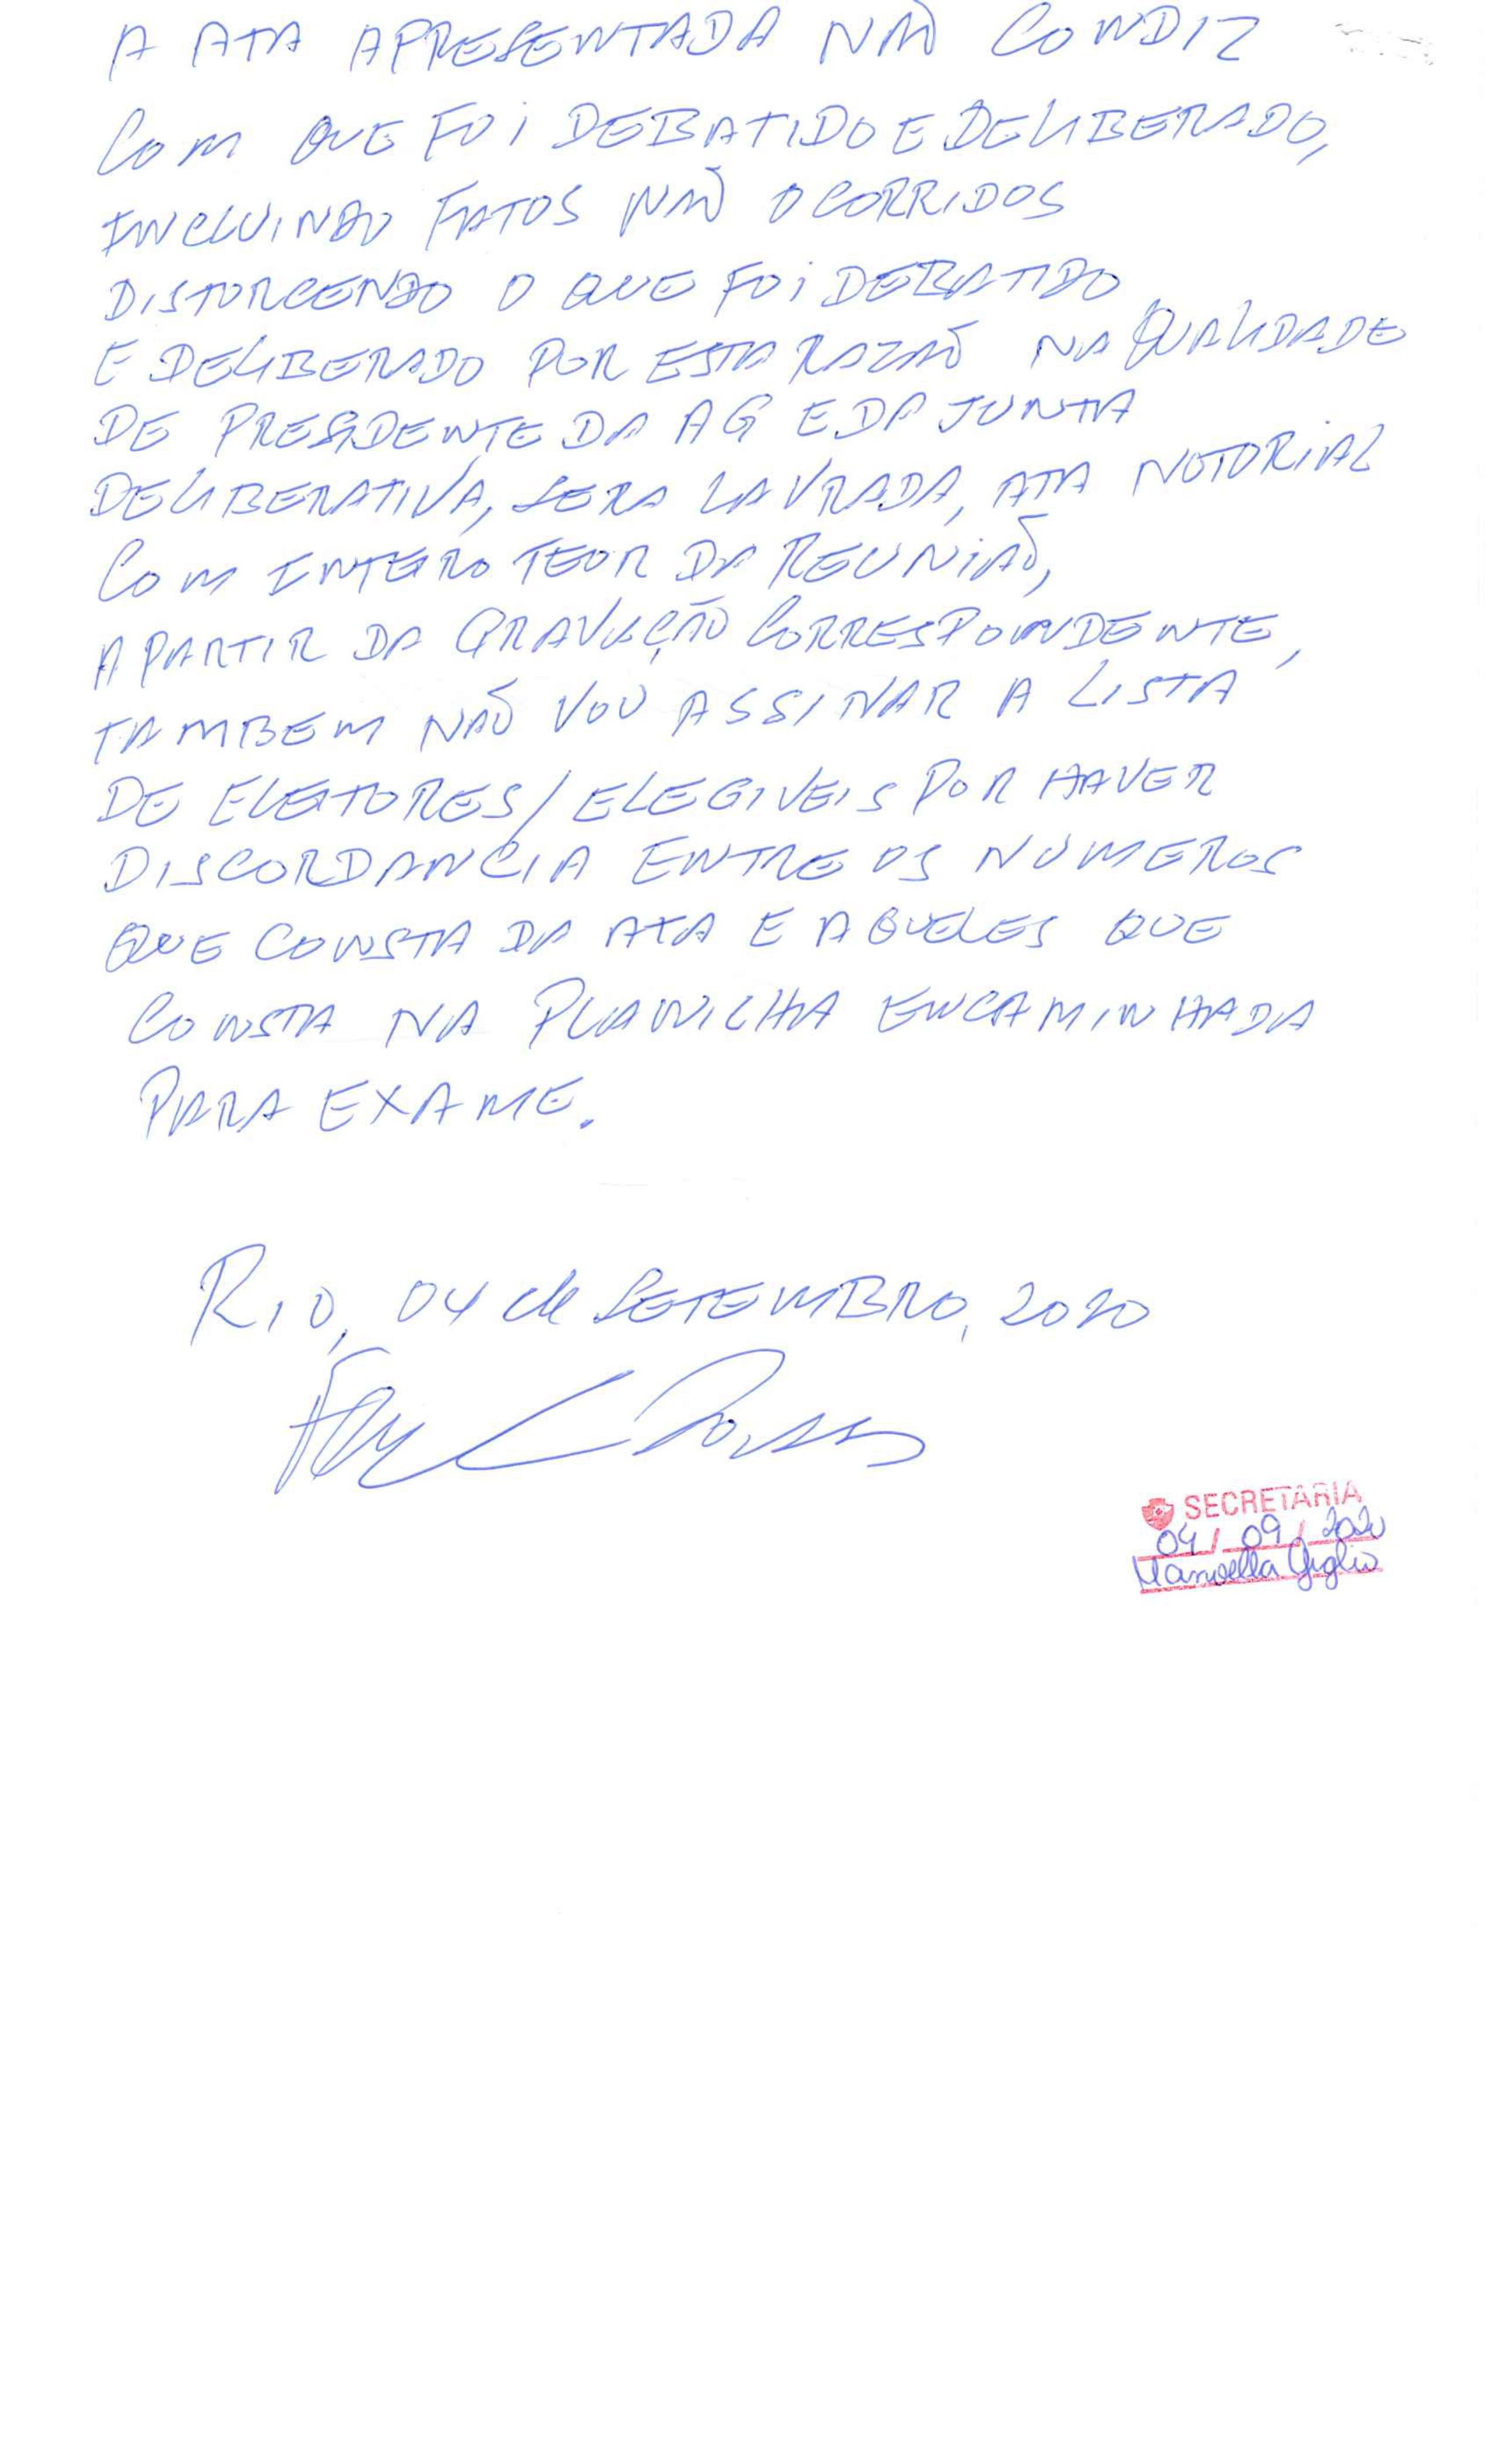 A ATA APRESENTADA NÃO CONDIZ
COM QUE FOI DEBATIDO E DELIBERADO,
INCLUINDO FATOS NÃO OCORRIDOS
DISTORCENDO O QUE FOI DEBATIDO
E DELIBERADO POR ESTA RAZÃO NA QUALIDADE
DE PRESIDENTE DA AG E DA JUNTA
DELIBERATIVA, SERA LAVRADA, ATA NOTORIAL
COM INTEIRO TEOR DA REUNIÃO,
A PARTIR DA GRAVAÇÃO CORRESPONDENTE,
TAMBEM NÃO VOU ASSINAR A LISTA
DE ELEITORES/ELEGIVEIS POR HAVER
DISCORDANCIA ENTRE OS NUMEROS
QUE CONSTA DA ATA E AQUELES QUE
CONSTA NA PLANILHA ENCAMINHADA
PARA EXAME.
RIO, 04 de SETEMBRO, 2020
SECRETARIA
04/09/2020
Manoella Giglio